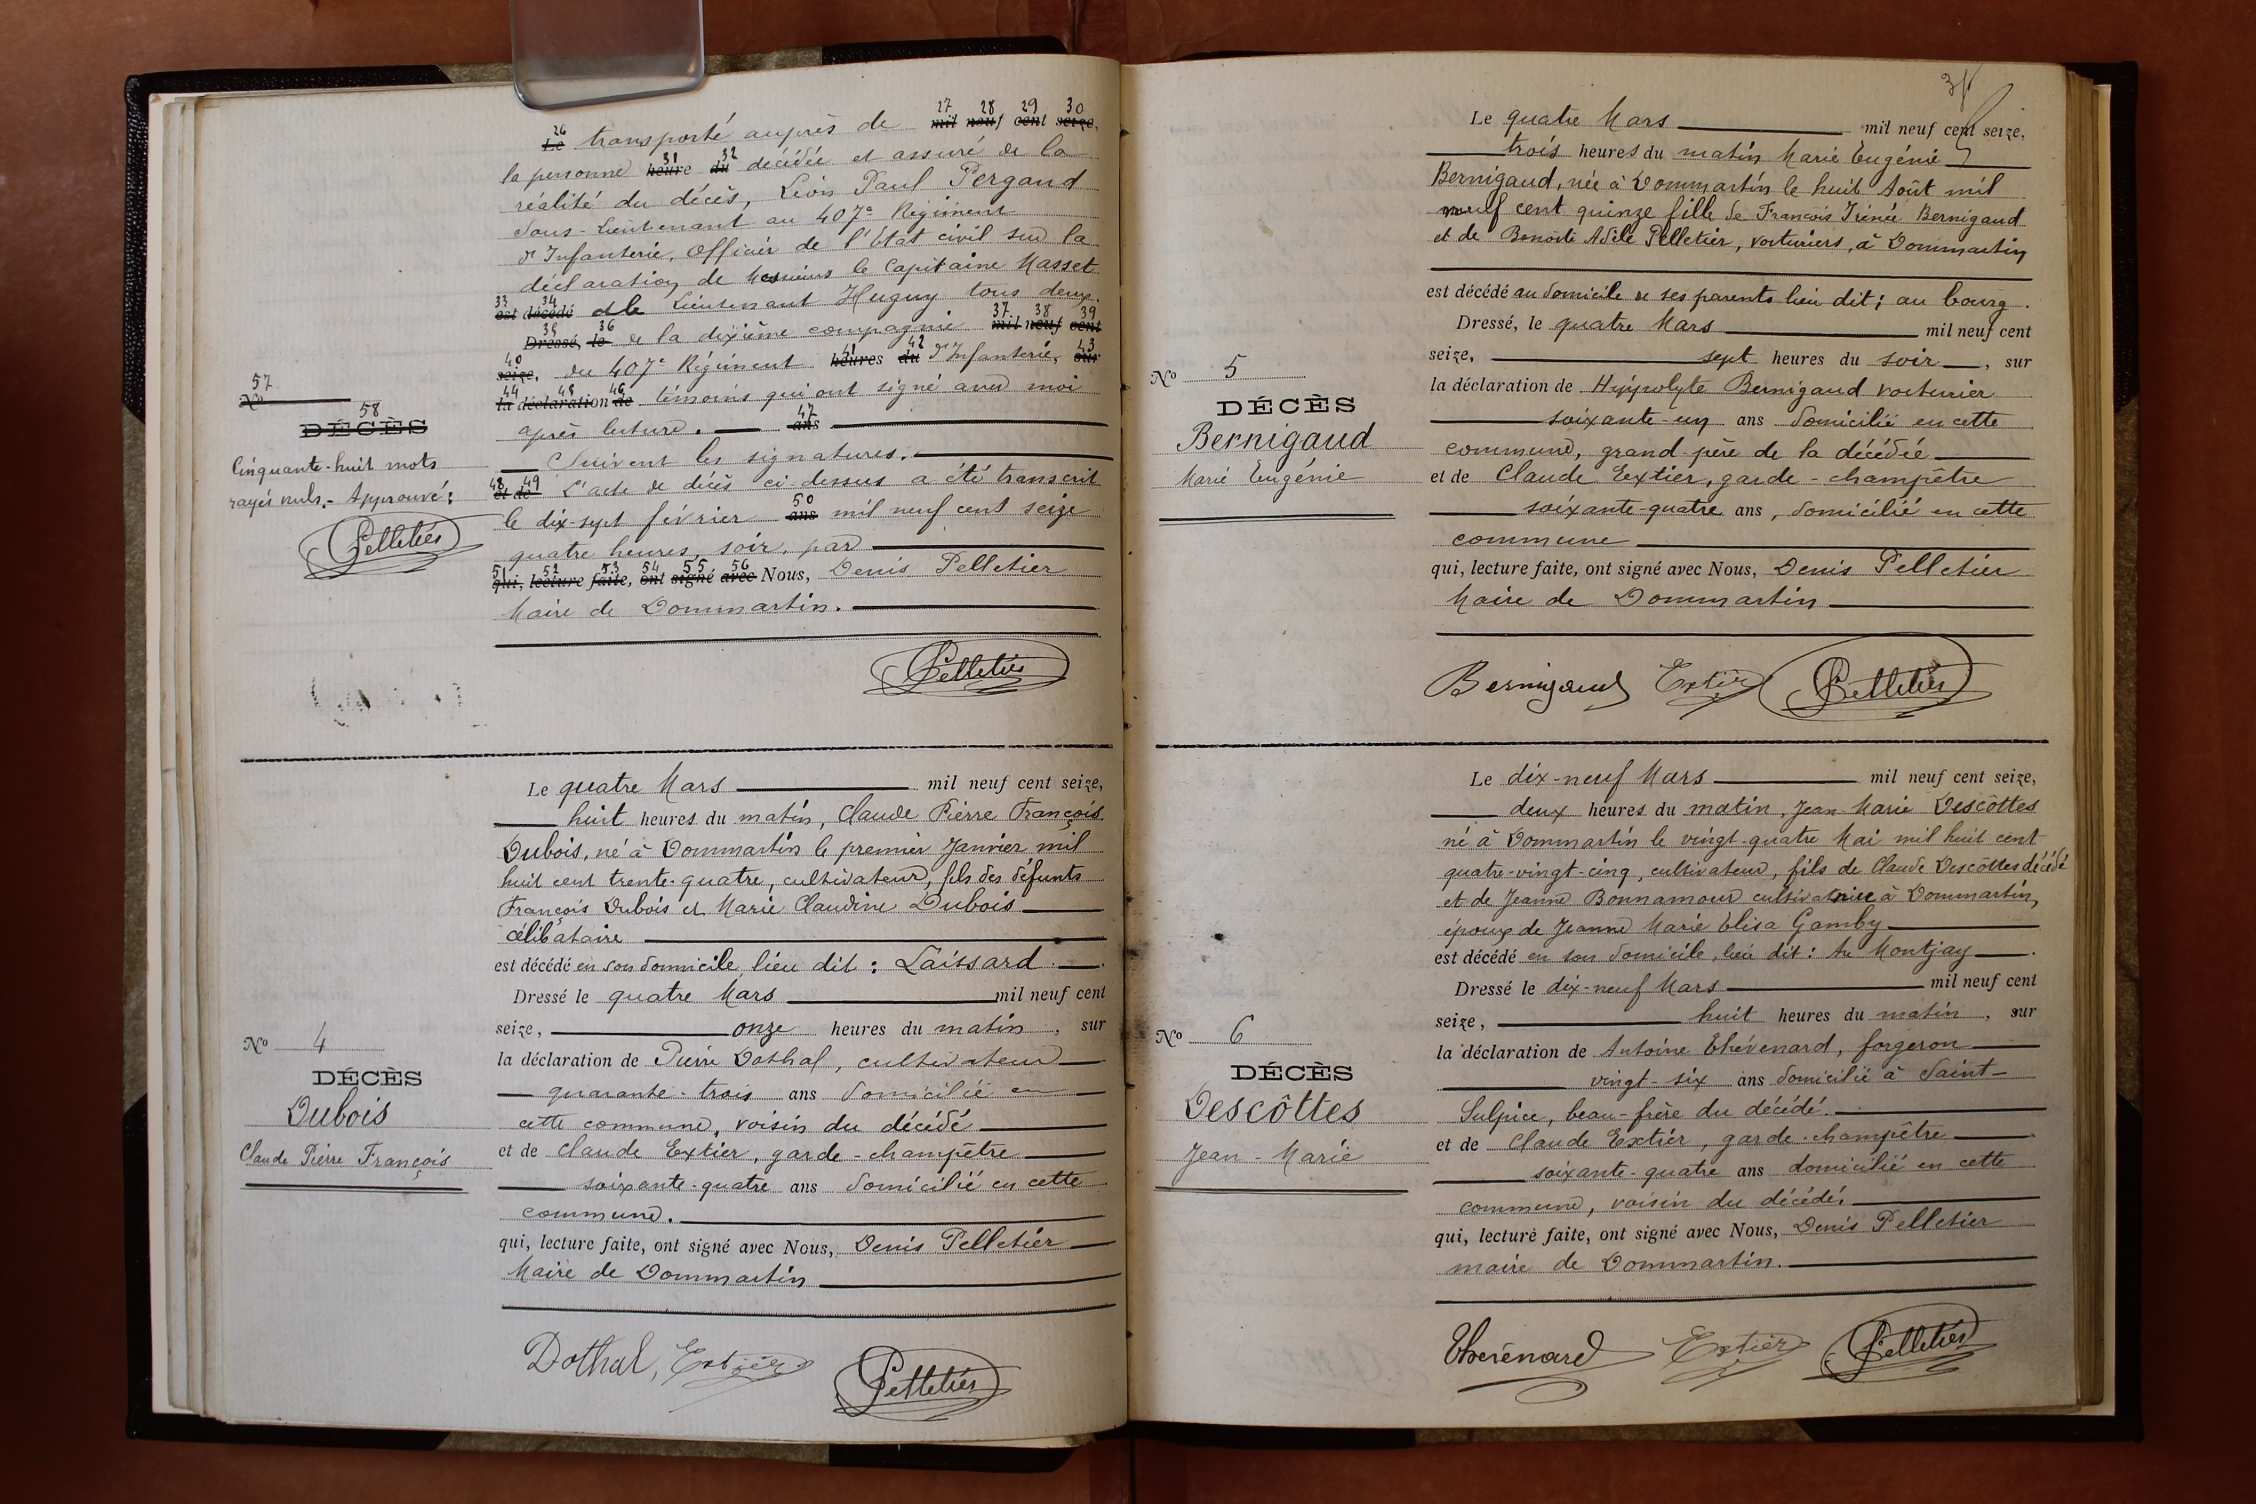 26 27 28 29 30
Le transporté auprès de mil neuf cent seize,
31 32
la personne heure du décédée et assuré de la
réalité du décès, Léon Paul Pergaud
Sous-Lieutenant au 407e Régiment
d'Infanterie, Officier de l'Etat civil sur la
déclaration de Messieurs le Capitaine Masset
33 34
est décédé de le Lieutenant Huguy tous deux
35 36 37 38 39
Dressé, le de la dixième compagnie mil neuf cent
40 41 42 43
seize, du 407e Régiment heures du d'Infanterie, sur
44 45 46
la déclaration de témoins qui ont signé avec moi
47
après lecture. ans
Suivent les signatures.
48 49
et de L'acte de décès ci-dessus a été transcrit
50
le dix-sept février ans mil neuf cent seize
quatre heures, soir, par
51 52 53 54 55 56
qui, lecture faite, ont signé avec Nous, Denis Pelletier
Maire de Dommartin.
Pelletier
57
No
58
DÉCÈS
Cinquante-huit mots
rayés nuls.- Approuvé:
Pelletier
Le quatre Mars mil neuf cent seize,
huit heures du matin, Claude Pierre François
Dubois, né à Dommartin le premier Janvier mil
huit cent trente-quatre, cultivateur, fils des défunts
François Dubois et Marie Claudine Dubois
célibataire
est décédé en son domicile lieu dit: Laissard.
Dressé le quatre Mars mil neuf cent
seize, onze heures du matin, sur
la déclaration de Pierre Dothal, cultivateur
quarante-trois ans domicilié en
cette commune, voisin du décédé
et de Claude Extier, garde-champêtre
soixante-quatre ans domicilié en cette
commune.
qui, lecture faite, ont signé avec Nous, Denis Pelletier
Maire de Dommartin
Dothal, Extier Pelletier
No 4
DÉCÈS
Dubois
Claude Pierre François
Le quatre Mars mil neuf cent seize,
trois heures du matin Marie Eugénie
Bernigaud, née à Dommartin le huit Août mil
neuf cent quinze fille de François Irénée Bernigaud
et de Benoite Adèle Pelletier, voituriers, à Dommartin
est décédé au domicile de ses parents lieu dit; au bourg.
Dressé, le quatre Mars mil neuf cent
seize, sept heures du soir, sur
la déclaration de Hyppolyte Bernigaud voiturier
soixante-un ans domicilié en cette
commune, grand-père de la décédée
et de Claude Extier, garde-champêtre
soixante-quatre ans, domicilié en cette
commune
qui, lecture faite, ont signé avec Nous, Denis Pelletier
Maire de Dommartin
Bernigaud Extier Pelletier
No 5
DÉCÈS
Bernigaud
Marie Eugénie
Le dix-neuf Mars mil neuf cent seize,
deux heures du matin, Jean Marie Descôttes
né à Dommartin le vingt-quatre Mai mil huit cent
quatre-vingt-cinq, cultivateur, fils de Claude Descôttes décédé
et de Jeanne Bonnamour cultivatrice à Dommartin,
époux de Jeanne Marie Elisa Gamby
est décédé en son domicile, lieu dit: Au Montjay.
Dressé le dix-neuf Mars mil neuf cent
seize, huit heures du matin, sur
la déclaration de Antoine Thévenard, forgeron
vingt-six ans domicilié à Saint-
Sulpice, beau-frère du décédé.
et de Claude Extier, garde-champêtre
soixante-quatre ans domicilié en cette
commune, voisin du décédé.
qui, lecture faite, ont signé avec Nous, Denis Pelletier
maire de Dommartin.
Thévenard Extier Pelletier
No 6
DÉCÈS
Descôttes
Jean-Marie